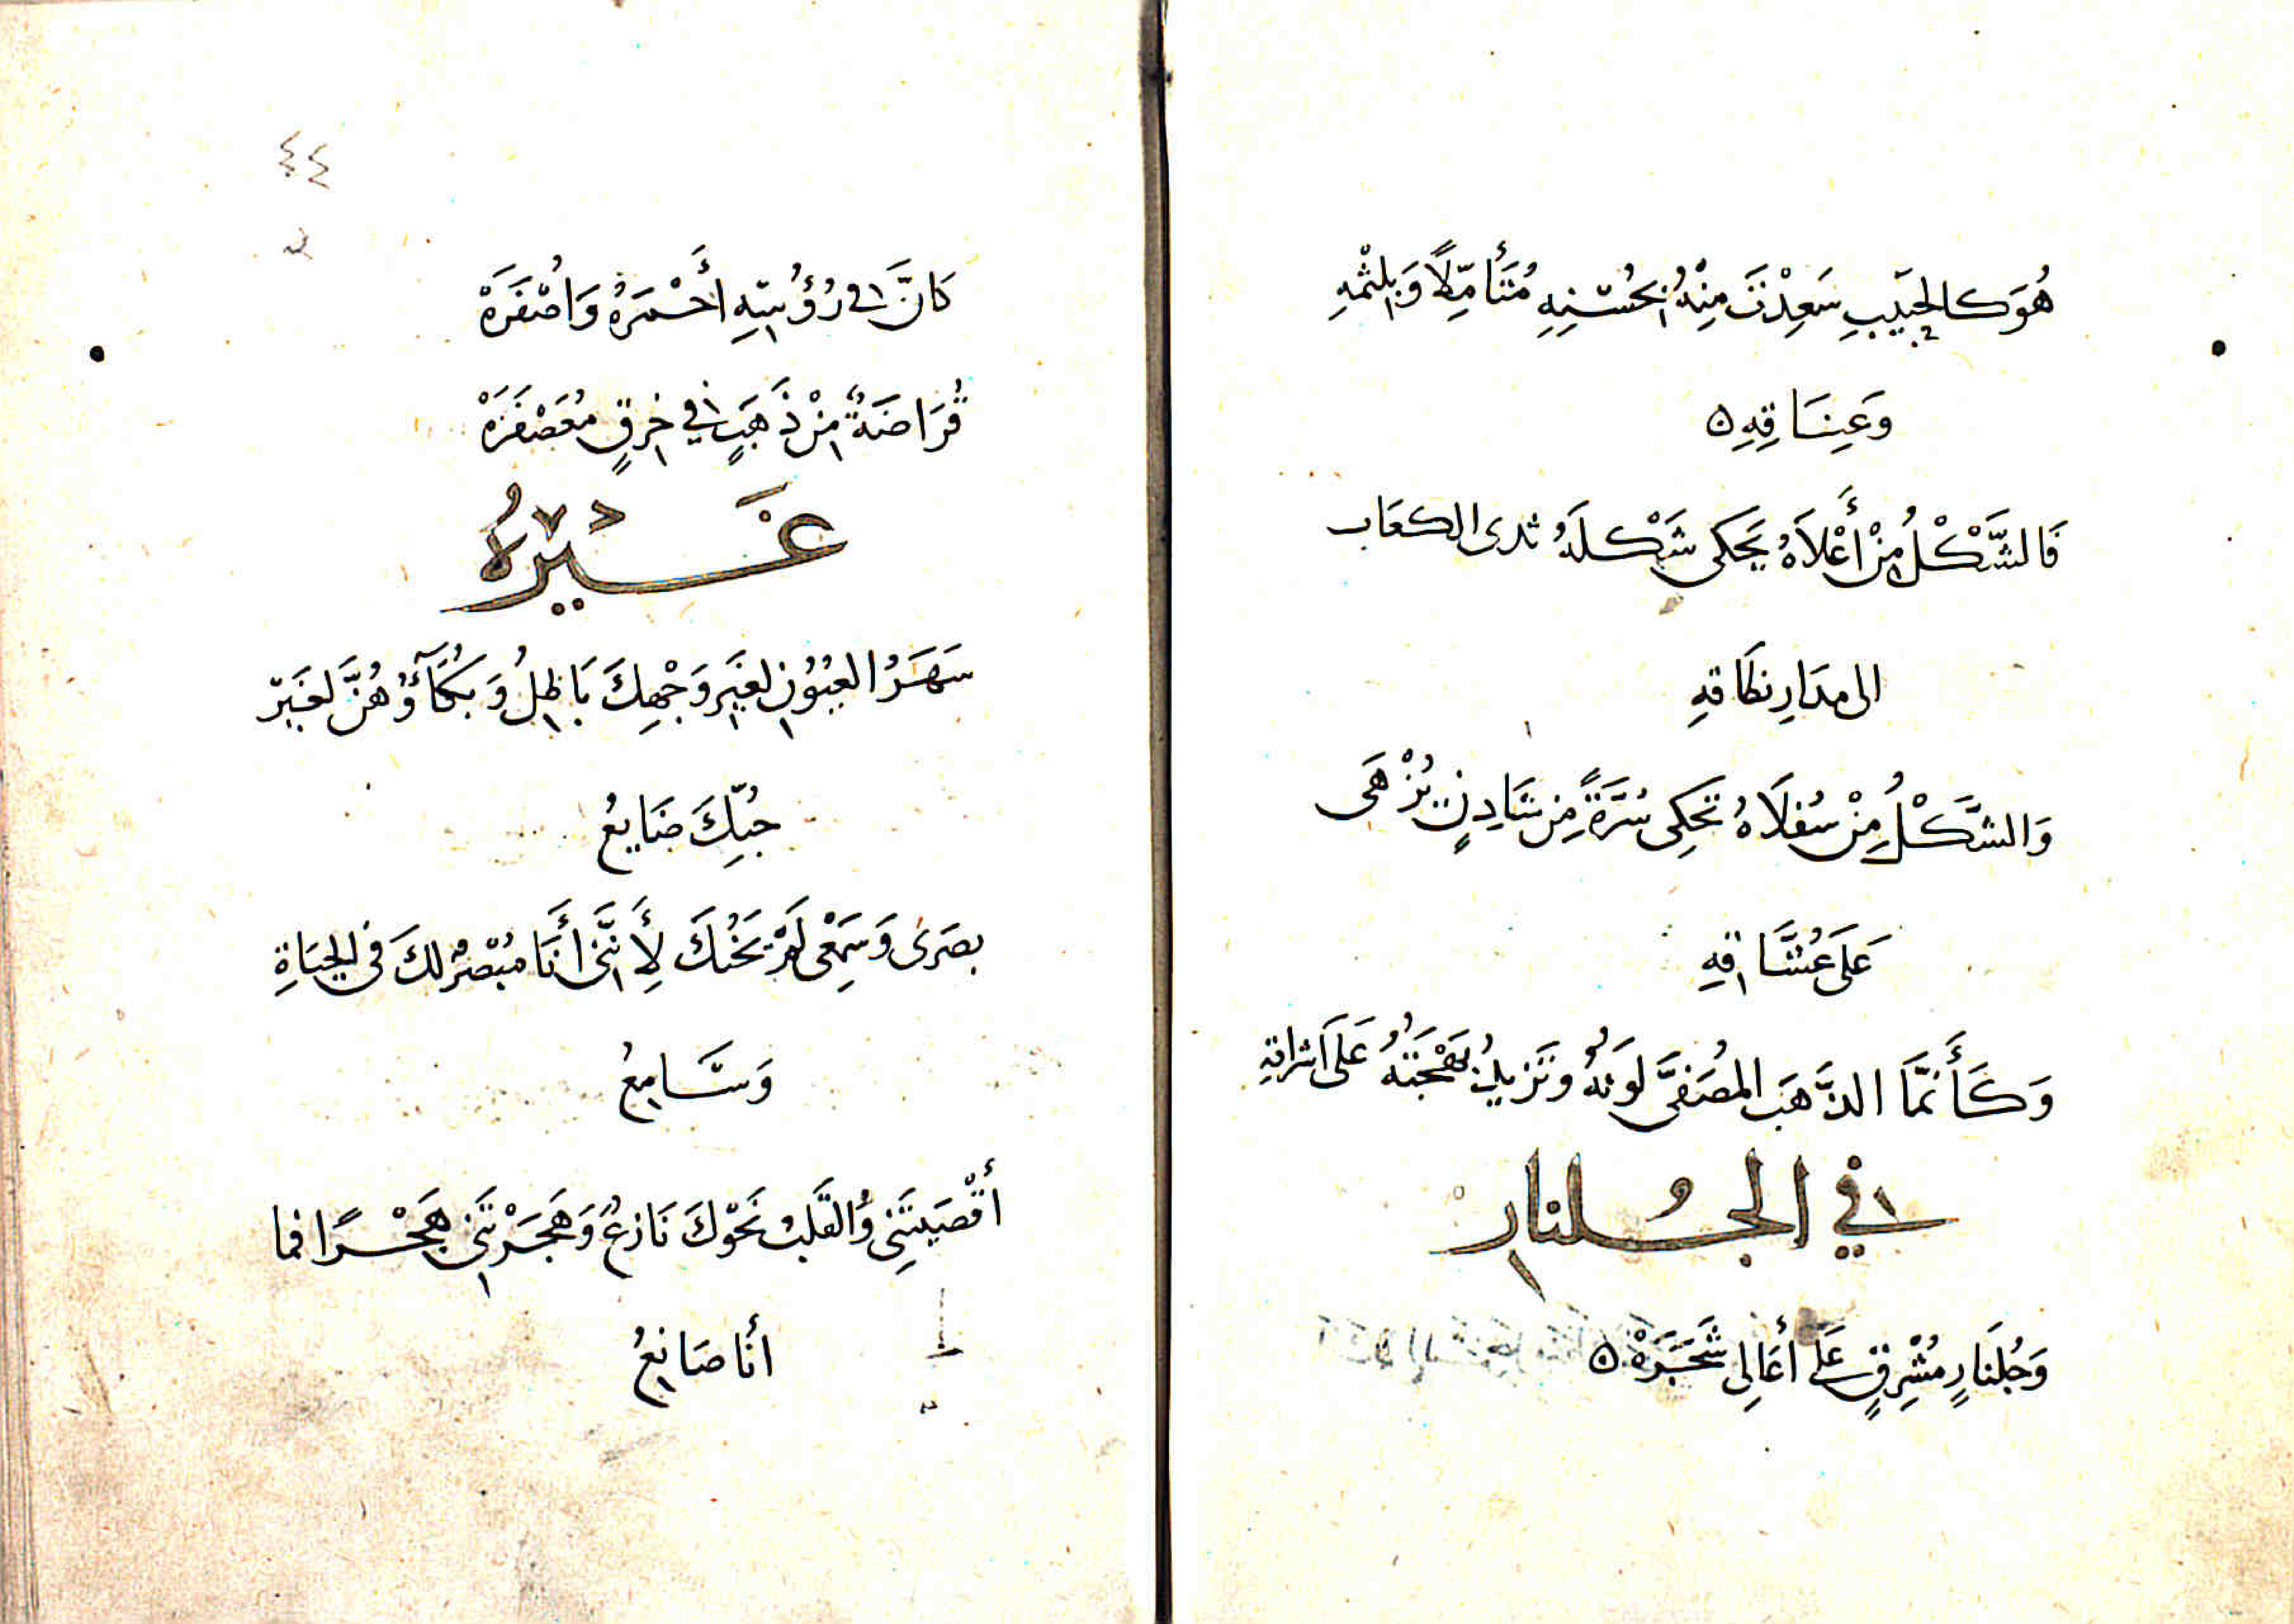 هُوَ كالحبيبِ سَعِدْتَ مِنْهُ بحُسْنِهِ مُتَأَمِّلاً وَبِلثْمهِ
وَعَنِنَاقِهِ ه
فَالشَّكْلُ مِنْ أَعْلَاهُ يَحكى شَكْلَهُ ثدى الكعَاب
الى مدَارِ نطَاقهِ
وَالشَّكْلُ مِنْ سُفلَاهُ تَحكِى سُرَّةً مِن شَادِنٍ يُزْهَى
عَلَى عُشَّاقِهِ
وَكَأَنَّمَا الذَّهَب المُصَفَّى لَونهُ وتَزيدُ بَهْجَتهُ عَلَى اشراقهِ
في الجُلنار
وَجُلنَارٍ مُشْرِقٍ عَلَى أعَالِى شَجَرَهْ ه
٤٤
كَانَّ فى رُؤُسِهِ أَحْمَرَهُ وَاصْفَرَهْ
قُرَاضَةٌ مِنْ ذَهَبٍ في خِرقٍ مُعَصْفَرَهْ
غَيْرُهُ
سَهَرُ العيُوُنِ لغَيرِ وَجْهِكَ بَاطِلُ وَبُكَآؤُهُنَّ لغَيرْ
حُبِّكَ ضَايعُ
بصَرِى وَسَمْعِى لَمْ يَخُنكَ لِأَنَّنِى أَنَا مُبْصِرٌ لكَ فى الحيَاةِ
وَسَّامِعُ
أَقْصَيتَنِى وَالقَلَبُ نَحْوْكَ نَازعُ وَهَجَرْتَنِى هَجْرًا فما
أنَا صَانِعُ